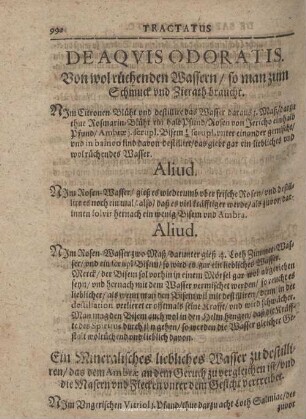 990 TRACTATUS
DE AQVIS ODORATIS.
Von wol rüchenden Wassern / so man zum
Schmuck vnd Zierath braucht.
NIm Citronen-Blüht vnd destillire das Wasser daraus 2. Maß / darzu
thue Rosmarin-Blüht ein halb Pfund / Rosen von Jericho einhalb
Pfund / Ambræ 3. scrupl. Bisem 1. scrupl. vnter einander gemischt /
vnd in balneo find davon destillirt / das giebt gar ein liebliches vnd
wol rüchendes Wasser.
Aliud.
NIm Rosen-Wasser / gieß es wiederumb ober frische Rosen / vnd destil-
lire es noch ein mal / also / daß es viel kräfftiger werde / als zuvor / dar-
innen solvir hernach ein wenig Bisem vnd Ambra.
Aliud.
NIm Rosen-Wasser zwo Maß / darunter gieß 4. Loth Zimmet-Was-
ser / vnd ein scrupl. Bisem / so wird es gar ein liebliches Wasser.
Merck / der Bisem sol vorhin in einem Mörsel gar wol abgerieben
seyn / vnd hernach mit dem Wasser vermischet werden / so reucht es
lieblicher / als wenn man den Bisem wil mit destilliren / denn in der
destillation verlieret er offtmals seine Krafft / vnd wird nur schwächer.
Man mag den Bisem auch wol in den Helm hengen / daß die Kräffte
des Spiritus durch ihn gehen / so werden die Wasser gleicher Ge-
stalt wolrüchend vnd lieblich.
Ein Mineralisches liebliches Wasser zu destilli-
ren / das dem Ambræ an dem Geruch zu vergleichen ist / vnd
die Masern vnd Flecken vnter dem Gesicht vertreibet.
NIm Vngerischen Vitriols 1. Pfund / thue darzu acht Loth Salmiac / der